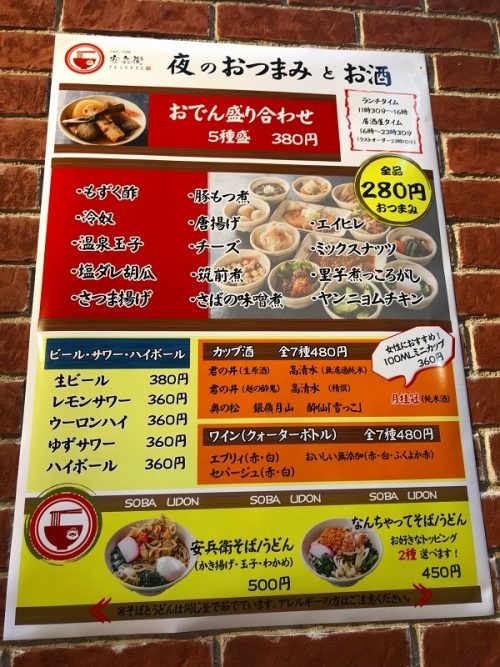 安兵衛
YASUBEE
夜のおつまみとお酒
おでん盛り合わせ
5種盛 380円
ランチタイム
11時30分〜16時
居酒屋タイム
16時〜23時30分
(ラストオーダー23時10分)
全品
280円
おつまみ
・もずく酢
・冷奴
・温泉玉子
・塩ダレ胡瓜
・さつま揚げ
・豚もつ煮
・唐揚げ
・チーズ
・筑前煮
・さばの味噌煮
・エイヒレ
・ミックスナッツ
・里芋煮っころがし
・ヤンニョムチキン
ビール・サワー・ハイボール
生ビール 380円
レモンサワー 360円
ウーロンハイ 360円
ゆずサワー 360円
ハイボール 360円
カップ酒 全7種480円
君の井(生原酒) 高清水(無濾過純米)
君の井(越の酔鬼) 高清水(精撰)
奥の松 銀嶺月山 酔仙「雪っこ」
女性におすすめ!
100MLミニカップ
360円
月桂冠(純米酒)
ワイン(クォーターボトル) 全7種480円
エブリィ(赤・白) おいしい無添加(赤・白・ふくよか赤)
セパージュ(赤・白)
SOBA UDON SOBA UDON SOBA UDON
安兵衛そば/うどん
(かき揚げ・玉子・わかめ)
500円
なんちゃってそば/うどん
お好きなトッピング
2種選べます!
450円
※そばとうどんは同じ釜で茹でています。アレルギーの方はご注意ください。